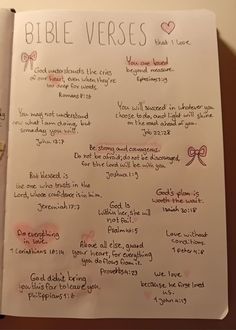 BIBLE VERSES
that I love
God understands the cries
of our heart, even when they're
too deep for words.
Romans 8:26
You are loved
beyond measure.
Ephesians 3:19
You may not understand
now what I am doing, but
someday you will.
John 13:7
You will succeed in whatever you
choose to do, and light will shine
on the road ahead of you.
Job 22:28
Be strong and courageous.
Do not be afraid; do not be discouraged,
for the Lord will be with you
Joshua 1:9
But blessed is
the one who trusts in the
Lord, whose confidence is in him.
Jeremiah 17:7
God's plan is
worth the wait.
Isaiah 30:18
God is
within her, she will
not fail.
Psalm 46:5
Do everything
in love.
1 Corinthians 16:14
Above all else, guard
your heart, for everything
you do flows from it.
Proverbs 4:23
Love without
conditions.
1 Peter 4:8
God didn't bring
you this far to leave you.
Philippians 1:6
We love
because He first loved
us.
1 John 4:19